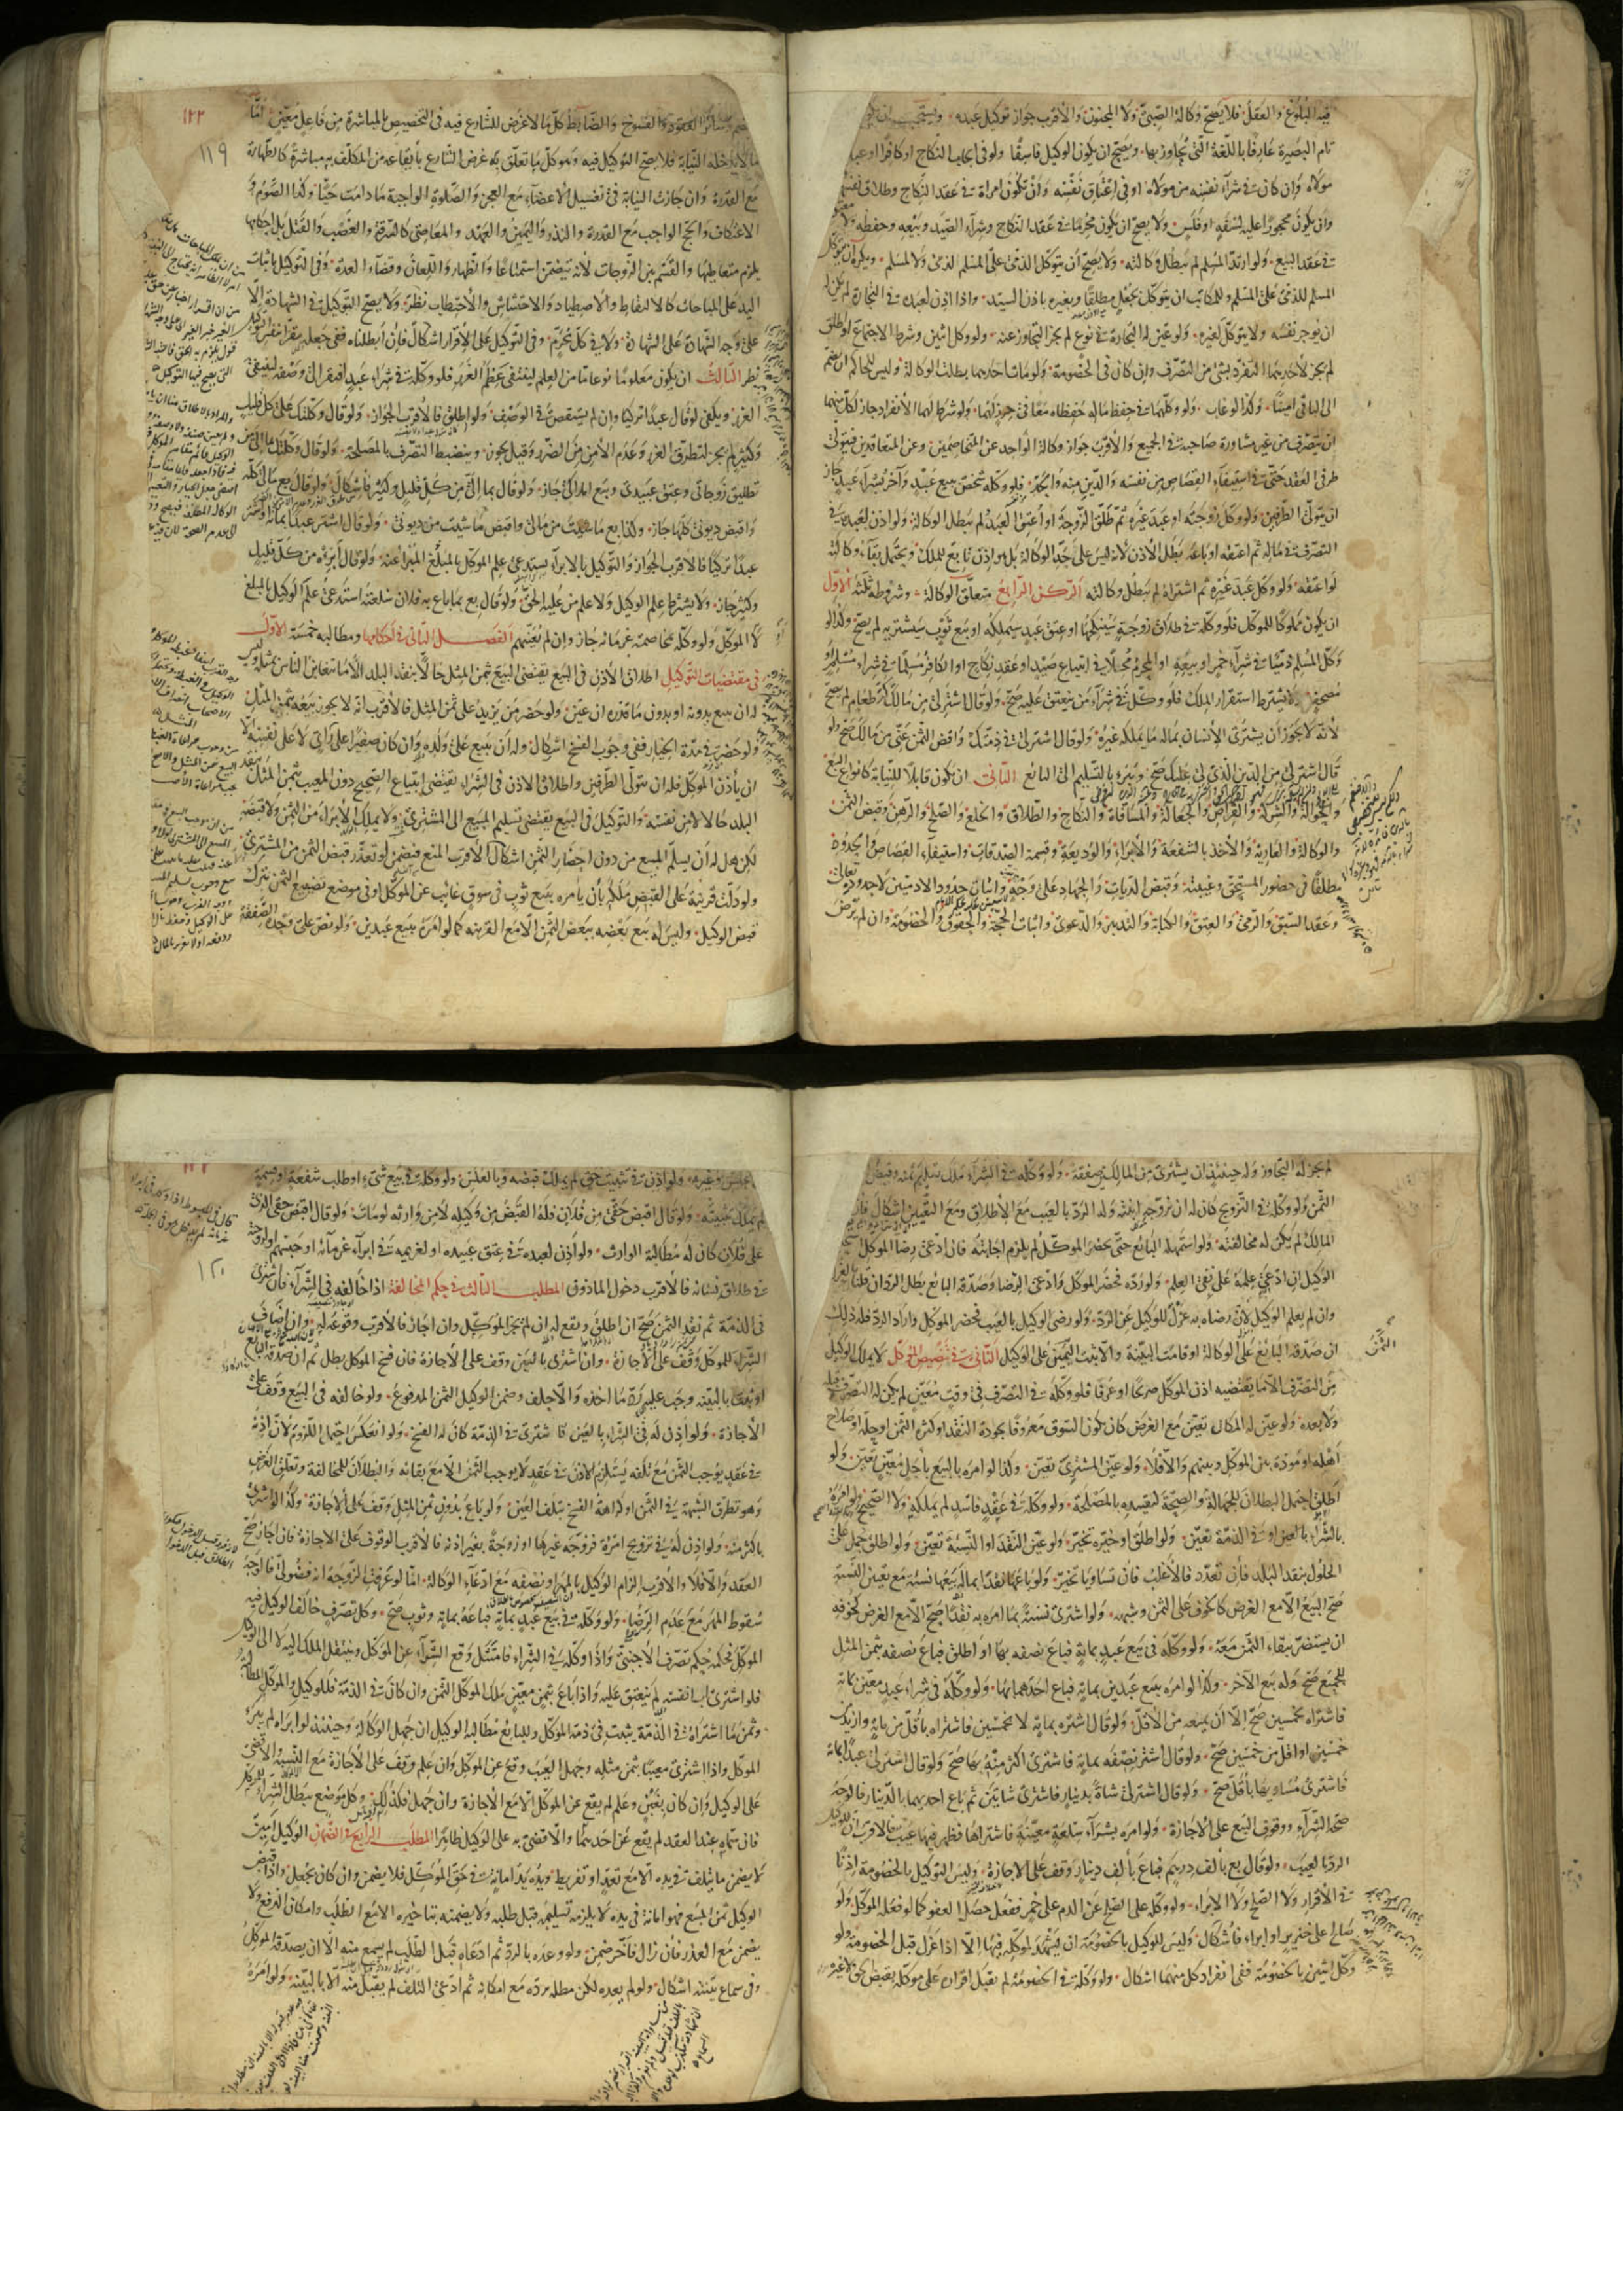 فيه البلوغ والعقل فلا يصح وكالة الصبي ولا المجنون والاقرب جواز توكيل عبده ويستحب ان يكون
تام البصيرة عارفا باللغة التي يحاور بها ويصح ان يكون الوكيل فاسقا ولو في ايجاب النكاح او كافرا او عبدا
مولاه وان كان في شرآء نفسه من مولاه او في اعتاق نفسه وان تكون امراة في عقد النكاح وطلاق نفسها
وان يكون محجورا عليه لسفه او فلس ولا يصح ان يكون محرما في عقد النكاح وشرآء الصيد وبيعه وحفظه
في عقد البيع ولو ارتد المسلم لم تبطل وكالته ولا يصح أن يتوكل الذمي على المسلم للذمي ولا لمسلم ويكره ان يتوكل
المسلم للذمي على المسلم وللمكاتب ان يتوكل بجعل مطلقا وبغيره باذن السيد واذا اذن لعبده في التجارة لم يكن له
ان يوجر نفسه ولا يتوكل لغيره ولو عين له التجارة في نوع لم يجز التجاوز عنه ولو وكل اثنين وشرط الاجتماع او اطلق
لم يجز لاحدهما التفرد بشئ من التصرف وان كان في الخصومة ولو مات احدهما بطلت الوكالة وليس للحاكم ان يضم
الى الباقي امينا وكذا لو غاب ولو وكلهما في حفظ ماله حفظاه معا في حرز لهما ولو شرط لهما الانفراد جاز لكل منهما
ان يتصرف من غير مشاورة صاحبه في الجميع والاقرب جواز وكالة الواحد عن المتخاصمين وعن المتعاقدين فيتولى
طرفي العقد حتى في استيفآء القصاص من نفسه والدين منه والحد فلو وكله شخص ببيع عبد وآخر بشرآء عبد جاز
ان يتولى الطرفين ولو وكل زوجته او عبد غيره ثم طلق الزوجة او اعتق العبد لم تبطل الوكالة ولو اذن لعبده في
التصرف في ماله ثم اعتقه او باعه بطل الاذن لانه ليس على حد الوكالة بل هو اذن تابع للملك ويحتمل بقآء وكالته
لو اعتقه ولو وكل عبد غيره ثم اشتراه لم تبطل وكالته الركن الرابع متعلق الوكالة وشروطه ثلثة الاول
ان يكون مملوكا للموكل فلو وكله في طلاق زوجة سينكحها او عتق عبد سيملكه او بيع ثوب سيشتريه لم يصح وكذا لو
وكل المسلم ذميا في شرآء خمر او بيعه او المحرم محلا في ابتياع صيد او عقد نكاح او الكافر مسلما في شراء مسلم او
مصحف ولا يشترط استقرار الملك فلو وكل في شرآء من ينعتق عليه صح ولو قال اشتر لي من مالك كر طعام لم يصح
لانه لا يجوز أن يشترى الانسان بماله ما يملكه غيره ولو قال اشتر لي في ذمتك واقض الثمن عني من مالك صح ولو
قال اشتر لي من الدين الذي لي عليك صح وبرء بالتسليم الى البائع الثاني ان يكون قابلا للنيابة كانواع البيع
والحوالة والشركة والقراض والجعالة والمساقاة والنكاح والطلاق والخلع والصلح والرهن وقبض الثمن
والوكالة والعارية والاخذ بالشفعة والابراء والوديعة وقسمة الصدقات واستيفاء القصاص والحدود
مطلقا في حضور المستحق وغيبته وقبض الديات والجهاد على وجه واثبات حدود الادميين لا حدوده تعالى
وعقد السبق والرمي والعتق والكتابة والتدبير والدعوى واثبات الحجة والحقوق والخصومة وان لم يرض
وسائر العقود والفسوخ والضابط كل ما لا غرض للشارع فيه في التخصيص بالمباشرة من فاعل معين امّا
١٢٢
١١٩
ما لا يدخله النيابة فلا يصح التوكيل فيه وهو كل ما تعلق به غرض الشارع بايقاعه من المكلف به مباشرة كالطهارة
مع القدرة وان جازت النيابة في تغسيل الاعضآء مع العجز والصلوة الواجبة ما دامت حيا وكذا الصوم و
الاعتكاف والحج الواجب مع القدرة والنذر واليمين والعهد والمعاصي كالسرقة والغصب والقتل بل احكامها
يلزم متعاطيها والقسم بين الزوجات لانه يتضمن استمتاعا والظهار واللعان وقضاء العدة وفي التوكيل باثبات
اليد على المباحات كالالتقاط والاصطياد والاحتشاش والاحتطاب نظر ولا يصح التوكيل في الشهادة الا
على وجه الشهادة على الشهادة ولا في كل محرم وفي التوكيل على الاقرار اشكال فان ابطلناه ففي جعله مقرا بنفس التوكيل
نظر الثالث ان يكون معلوما نوعا ما من العلم لينتفي عظم الغرر فلو وكله في شراء عبد افتقر الى وصفه لينتفي
الغرر ويكفي لو قال عبدا تركيا وان لم يستقص في الوصف ولو اطلق فالاقرب الجواز ولو قال وكلتك على كل قليل
وكثير لم يجز لتطرق الغرر وعدم الامن من الضرر وقيل يجوز وينضبط التصرف بالمصلحة ولو قال وكلتك بما الي من
تطليق زوجاتي وعتق عبيدي وبيع املاكي جاز ولو قال بما الي من كل قليل وكثير فاشكال ولو قال بع مالي كله
واقبض ديوني كلها جاز وكذا بع ما شيت من مالي واقبض ما شيت من ديوني ولو قال اشتر عبدا بماية او اشتر
عبدا تركيا فالاقرب الجواز والتوكيل بالابرآء يستدعي علم الموكل بالمبلغ المبرا عنه ولو قال ابرءه من كل قليل
وكثير جاز ولا يشترط علم الوكيل ولا علم من عليه الحق ولو قال بع بما باع به فلان سلعته استدعى علم الوكيل بالمبلغ
لا الموكل ولو وكله بمخاصمة غرمائه جاز وان لم يعينهم الفصل الثاني في احكامها ومطالبه خمسة الاول
في مقتضيات التوكيل اطلاق الاذن في البيع يقتضي البيع بثمن المثل حالا بنقد البلد الا ما يتغابن الناس بمثله وليس
له ان يبيع بدونه او بدون ما قدره ان عين ولو حضر من يزيد على ثمن المثل فالاقرب انه لا يجوز بيعه بثمن المثل
ولو حضر في مدة الخيار ففي وجوب الفسخ اشكال وله ان يبيع على ولده وان كان صغيرا على رأي لا على نفسه الا
ان يأذن الموكل فله ان يتولى الطرفين واطلاق الاذن في الشراء يقتضي ابتياع الصحيح دون المعيب بثمن المثل بنقد
البلد حالا لا من نفسه والتوكيل في البيع يقتضي تسليم المبيع الى المشتري ولا يملك الابراء من الثمن ولا قبضه
لكن هل له أن يسلم المبيع من دون احضار الثمن اشكال الاقرب المنع فيضمن لو تعذر قبض الثمن من المشتري
ولو دلت قرينة على القبض ملكه بأن يأمره ببيع ثوب في سوق غائب عن الموكل او في موضع تضييع الثمن بترك
قبض الوكيل وليس له بيع بعضه ببعض الثمن الا مع القرينه كما لو امره ببيع عبدين ولو نص على وحدة الصفقة
لم يجز له التجاوز وله حينئذ ان يشتري من المالكين صفقة ولو وكله في الشرآء ملك تسليم ثمنه وقبض
الثمن ولو وكله في التزويج كان له ان يزوجه ابنته وله الرد بالعيب مع الاطلاق ومع التعيين اشكال فان
المالك لم يكن له مخالفته ولو استمهله البائع حتى يحضر الموكل لم يلزم اجابته فان ادعى رضا الموكل
الوكيل ان ادعى علمه على نفي العلم ولو رده فحضر الموكل وادعى الرضا وصدقه البائع بطل الرد ان قلنا بالعزل
وان لم يعلم الوكيل لان رضاه به عزل للوكيل عن الرد ولو رضي الوكيل بالعيب فحضر الموكل واراد الرد فله ذلك
ان صدقه البائع على الوكالة او قامت البينة والا ثبت الثمن على الوكيل الثاني في تنصيص الموكل لا يملك الوكيل
الثمن
من التصرف الا ما يقتضيه اذن الموكل صريحا او عرفا فلو وكله في التصرف في وقت معين لم يكن له التصرف قبله
ولا بعده ولو عين له المكان تعين مع الغرض كان يكون السوق معروفا بجودة النقد او كثرة الثمن او حله او صلاح
اهله او مودة بين الموكل وبينهم والا فلا ولو عين المشتري تعين وكذا لو امره بالبيع بأجل معين تعين ولو
اطلق احتمل البطلان للجهالة والصحة لتقييده بالمصلحة ولو وكله في عقد فاسد لم يملكه ولا الصحيح ولو امره
بالشراء بالعين او في الذمة تعين ولو اطلق او خيره تخير ولو عين النقد او النسية تعين ولو اطلق حمل على
الحلول بنقد البلد فان تعدد فالاغلب فان تساويا تخير ولو باعها نقدا بما له بيعها نسية مع تعيين النسية
صح البيع الا مع الغرض كالخوف على الثمن وشبهه ولو اشترى نسية بما امره به نقدا صح الا مع الغرض كخوفه
ان يستضر ببقاء الثمن معه ولو وكله في بيع عبد بماية فباع نصفه بها او اطلق فباع نصفه بثمن المثل
للجميع صح وله بيع الآخر وكذا لو امره ببيع عبدين بماية فباع احدهما بها ولو وكله في شراء عبد معين بماية
فاشتراه بخمسين صح الا أن يمنعه من الاقل ولو قال اشتره بماية لا بخمسين فاشتراه باقل من ماية وازيد من
خمسين او اقل من خمسين صح ولو قال اشتر نصفه بماية فاشترى اكثر منه بها صح ولو قال اشتر لي عبدا بماية
فاشترى مساويها بأقل صح ولو قال اشتر لي شاة بدينار فاشترى شاتين ثم باع احديهما بالدينار فالوجه
صحة الشرآء ووقوف البيع على الاجازة ولو امره بشرآء سلعة معينة فاشتراها فظهر فيها عيب فالاقرب ان للوكيل
الرد بالعيب ولو قال بع بألف درهم فباع بألف دينار وقف على الاجازة وليس التوكيل بالخصومة اذنا
في الاقرار ولا الصلح ولا الابراء ولو وكله على الصلح عن الدم على خمر ففعل حصل العفو كما لو فعله الموكل ولو
صالح على خنزير او ابراء فاشكال وليس للوكيل بالخصومة ان يشهد لموكله فيها الا اذا عزل قبل الخصومة ولو
وكل اثنين بالخصومة ففي انفراد كل منهما اشكال ولو وكله في الخصومة لم يقبل اقراره على موكله بقبض الحق ولا غيره
ولو اذن في تثبيت حق لم يملك قبضه وبالعكس ولو وكله في بيع شئ او طلب شفعة او قسمة
لم يملك تثبيته ولو قال اقبض حقي من فلان فله القبض من وكيله لا من وارثه لو مات ولو قال اقبض حقي الذي
على فلان كان له مطالبة الوارث ولو اذن لعبده في عتق عبيده او لغريمه في ابرآء غرمآئه او حبسهم او لزوجته
١٢٠
في طلاق نسائه فالاقرب دخول الماذون المطلب الثالث في حكم المخالفة اذا خالفه في الشرآء فان اشترى
في الذمة ثم نقد الثمن صح ان اطلق ويقع له ان لم يجز الموكل وان اجاز فالاقرب وقوعه له وان اضاف
الشراء للموكل وقف على الاجازة وان اشترى بالعين وقف على الاجازة فان فسخ الموكل بطل ثم ان صدقه البائع
او ثبت بالبينه وجب عليه رد ما اخذه والا حلف وضمن الوكيل الثمن المدفوع ولو خالفه في البيع وقف على
الاجازة ولو اذن له في الشراء بالعين فاشترى في الذمة كان له الفسخ ولو انعكس احتمل اللزوم لان اذنه
في عقد يوجب الثمن مع تلفه يستلزم الاذن في عقد لا يوجب الثمن الا مع بقائه والبطلان للمخالفة وتعلق الغرض
وهو تطرق الشبهة في الثمن او كراهة الفسخ بتلف العين ولو باع بدون ثمن المثل وقف على الاجازة وكذا لو اشترى
باكثر منه ولو اذن له في تزويج امرأة فزوجه غيرها او زوجة بغير اذنه فالاقرب الوقوف على الاجازة فان اجاز صح
العقد والا فلا والاقرب الزام الوكيل بالمهر او نصفه مع ادعآء الوكالة امّا لو عرفت الزوجة انه فضولي فالوجه
سقوط المهر مع عدم الرضا ولو وكله في بيع عبد بماية فباعه بماية وثوب صح وكل تصرف خالف الوكيل فيه
الموكل فحكمه حكم تصرف الاجنبي واذا وكله في الشراء فامتثل وقع الشرآء عن الموكل وينتقل الملك اليه لا الى الوكيل
فلو اشترى ابا نفسه لم ينعتق عليه واذا باع بثمن معين ملك الموكل الثمن وان كان في الذمة فللوكيل والموكل المطالبة
وثمن ما اشتراه في الذمة يثبت في ذمة الموكل وللبائع مطالبة الوكيل ان جهل الوكالة وحينئذ لو ابراه لم يبرء
الموكل واذا اشترى معيبا بثمن مثله وجهل العيب وقع عن الموكل وان علم وقف على الاجازة مع النسبة والا قضي
على الوكيل وان كان بغبن وعلم لم يقع عن الموكل الا مع الاجازة وان جهل فكذلك وكل موضع يبطل الشراء للموكل
فان سماه عند العقد لم يقع عن احدهما والا قضى به على الوكيل ظاهرا المطلب الرابع في الضمان الوكيل امين
لا يضمن ما يتلف في يده الا مع تعد او تفريط ويده يد امانة في حق الموكل فلا يضمن وان كان بجعل واذا قبض
الوكيل ثمن المبيع فهو امانة في يده لا يلزمه تسليمه قبل طلبه ولا يضمنه بتاخيره الا مع الطلب وامكان الدفع ولا
يضمن مع العذر فان زال فأخر ضمن ولو وعده بالرد ثم ادعاه قبل الطلب لم يسمع منه الا ان يصدقه الموكل
وفي سماع بينته اشكال ولو لم يعده لكن مطله برده مع امكانه ثم ادعى التلف لم يقبل منه الا بالبينه ولو امره